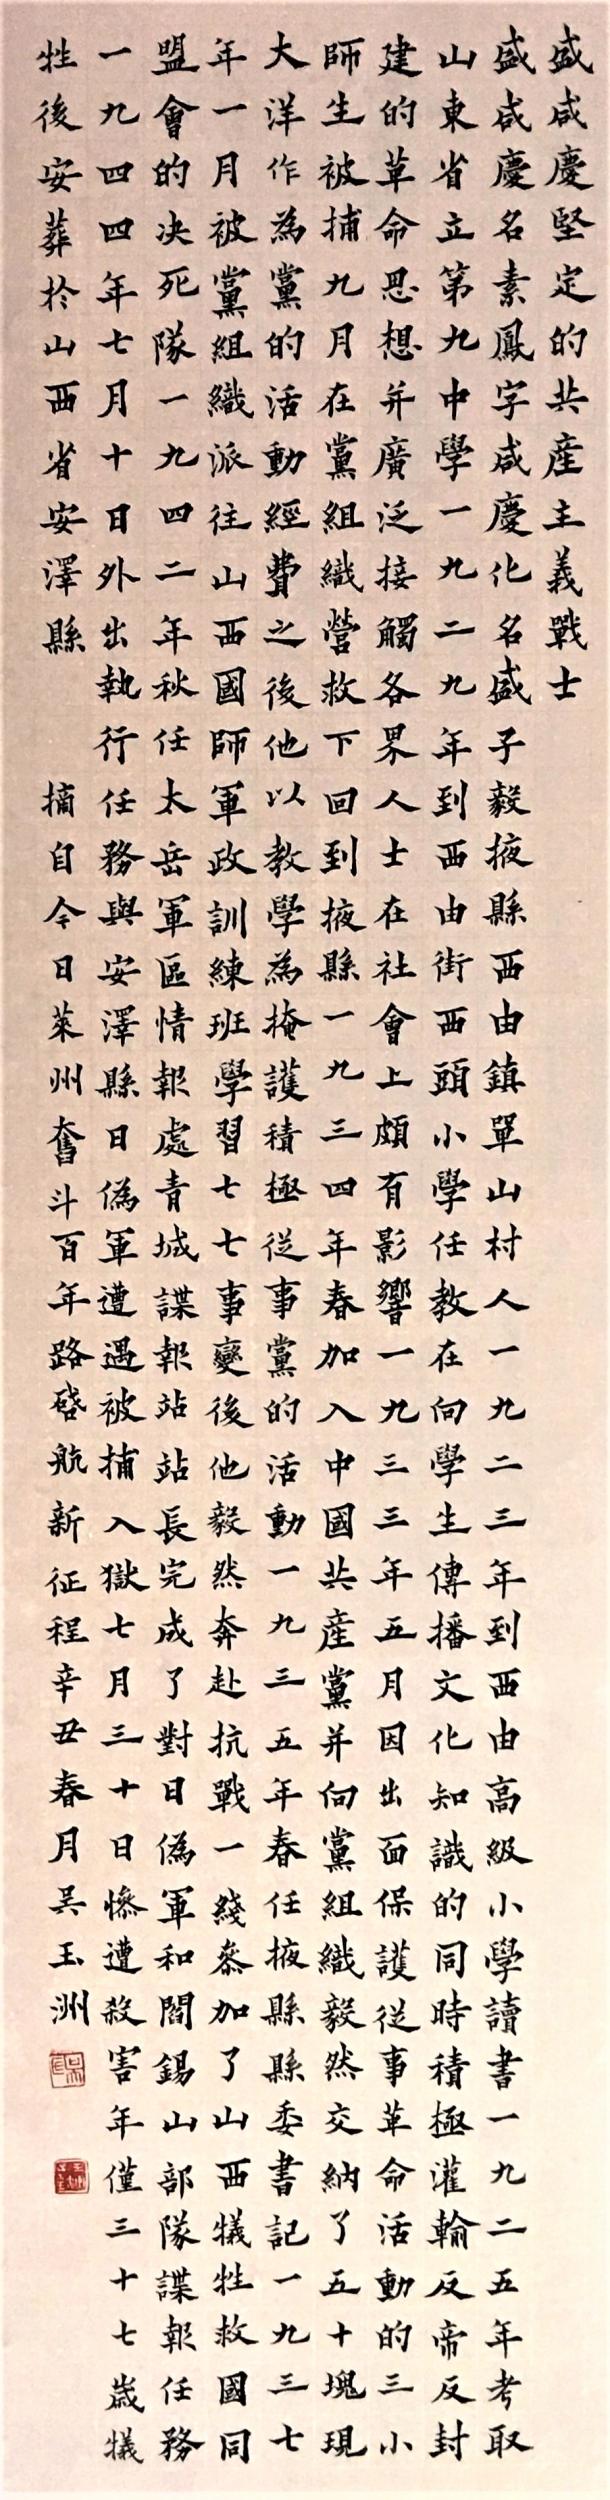 盛咸慶堅定的共産主義戰士
盛咸慶名素鳳字咸慶化名盛子毅掖縣西由鎮單山村人一九二三年到西由高級小學讀書一九二五年考取
山東省立第九中學一九二九年到西由街西頭小學任教在向學生傳播文化知識的同時積極灌輸反帝反封
建的革命思想并廣泛接觸各界人士在社會上頗有影響一九三三年五月因出面保護從事革命活動的三小
師生被捕九月在黨組織營救下回到掖縣一九三四年春加入中國共産黨并向黨組織毅然交納了五十塊現
大洋作為黨的活動經費之後他以教學為掩護積極從事黨的活動一九三五年春任掖縣縣委書記一九三七
年一月被黨組織派往山西國師軍政訓練班學習七七事變後他毅然奔赴抗戰一綫叅加了山西犧牲救國同
盟會的决死隊一九四二年秋任太岳軍區情報處青城諜報站站長完成了對日偽軍和閻錫山部隊諜報任務
一九四四年七月十日外出執行任務與安澤縣日偽軍遭遇被捕入獄七月三十日慘遭殺害年僅三十七歲犧
牲後安葬於山西省安澤縣 摘自今日萊州奮斗百年路啓航新征程辛丑春月吳玉洲